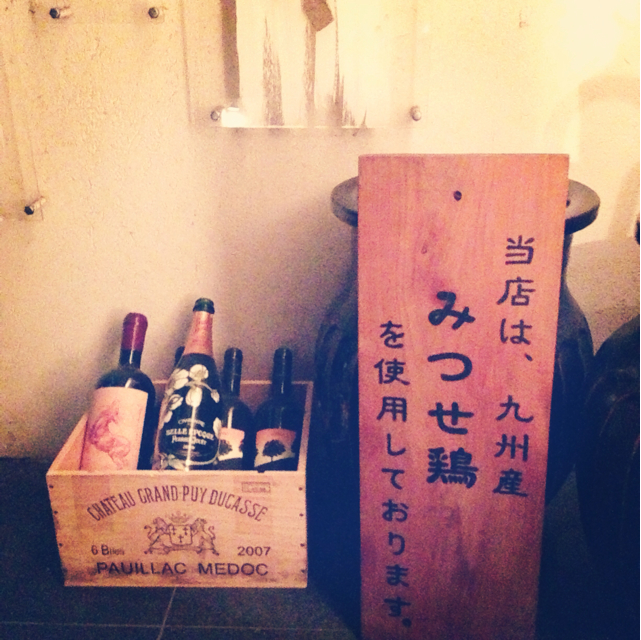 当店は、九州産
みつせ鶏
を使用しております。
BELLE EPOQUE
CHATEAU GRAND-PUY DUCASSE
6 Btles 2007
PAUILLAC MEDOC